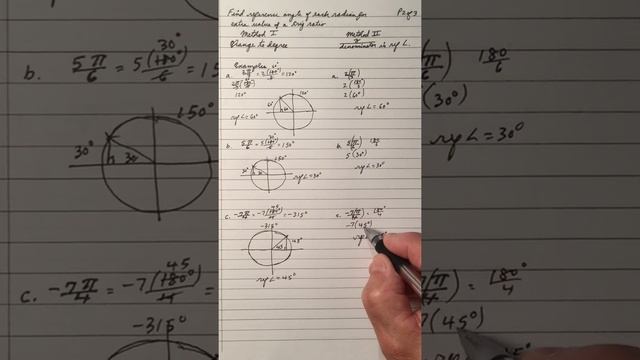 Find reference angle of each radian for P2 of 3
extra value of a trig ratio
Method I
Change to degree
Method II
denominator is ref ∠.
Examples
a. 2π/3 = 2(180°)/3 = 120°
120°
120°
60°
60°
ref ∠ = 60°
a. 2(π/3)
2(180/3)
2(60°)
ref ∠ = 60°
b. 5π/6 = 5(180°)/6 = 150°
30°
150°
30°
30°
ref ∠ = 30°
b. 5(π/6) 180/6
5(30°)
ref ∠ = 30°
c. -7π/4 = -7(180°)/4 = -315°
45
-315°
45°
45°
ref ∠ = 45°
c. -7(π/4) = 180°/4
-7(45°)
b. 5π/6 = 5(180°)/6 = 15
30°
150°
30°
30
c. -7π/4 = -7(180°)/4
45
-315°
180/6
(30°)
ref ∠ = 30°
= 180°/4
7(45°)